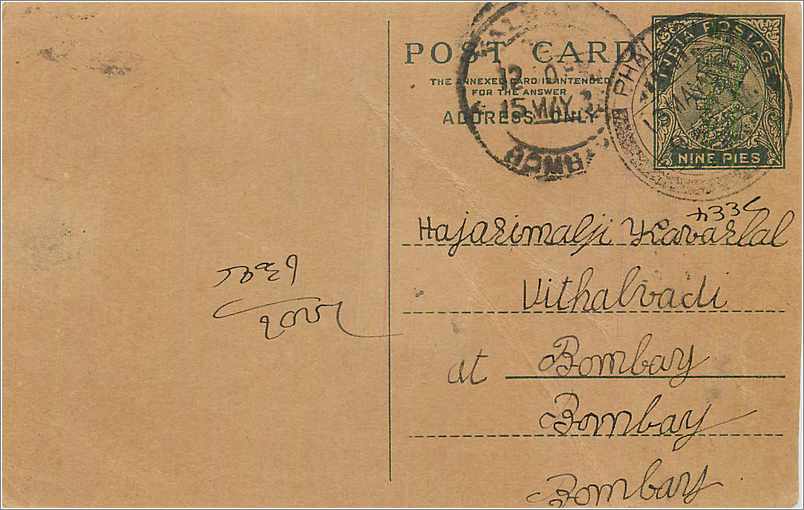 POST CARD
THE ANNEXED CARD IS INTENDED
FOR THE ANSWER
ADDRESS ONLY
INDIA POSTAGE
NINE PIES
15 MAY 3
BOMBAY
PHAL
MAY
Hajarimalji
Vithalvadi
at Bombay
Bombay
Bombay